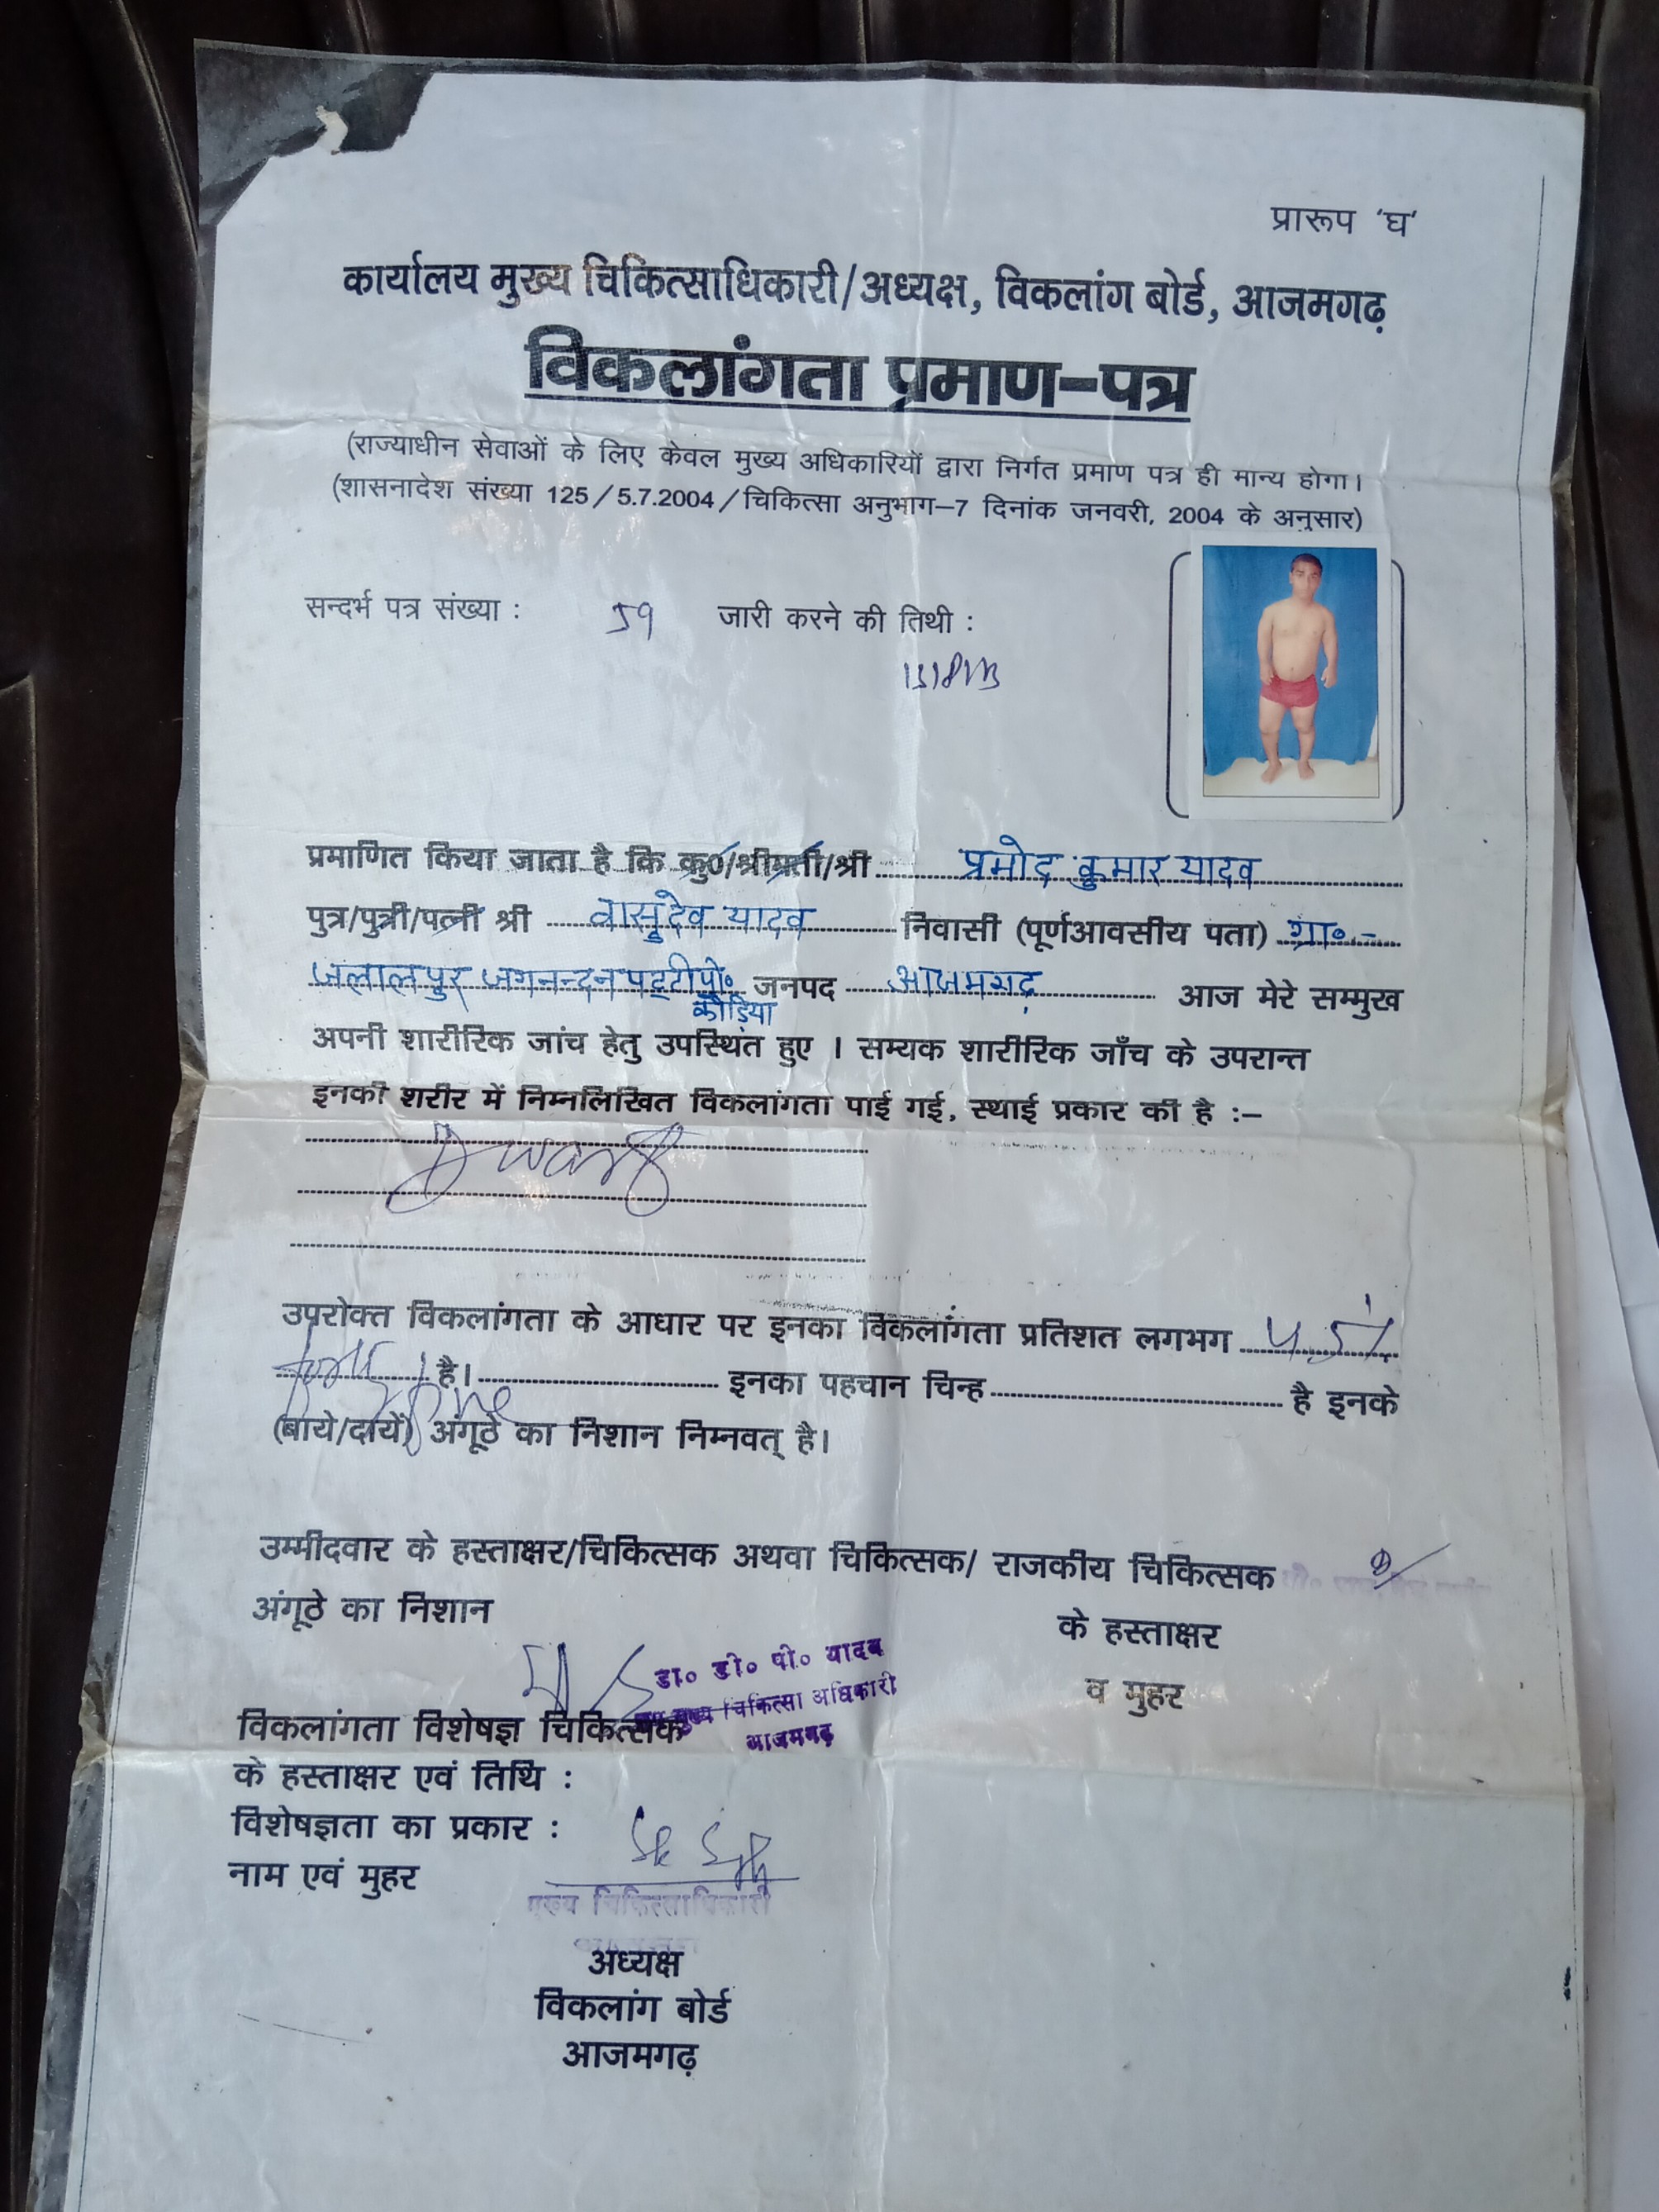 प्रारूप 'घ'
कार्यालय मुख्य चिकित्साधिकारी/अध्यक्ष, विकलांग बोर्ड, आजमगढ़
विकलांगता प्रमाण-पत्र
(राज्याधीन सेवाओं के लिए केवल मुख्य अधिकारियों द्वारा निर्गत प्रमाण पत्र ही मान्य होगा।
(शासनादेश संख्या 125/5.7.2004/चिकित्सा अनुभाग-7 दिनांक जनवरी, 2004 के अनुसार)
सन्दर्भ पत्र संख्या : 59 जारी करने की तिथी :
प्रमाणित किया जाता है कि कु0/श्रीमती/श्री प्रमोद कुमार यादव
पुत्र/पुत्री/पत्नी श्री वासुदेव यादव निवासी (पूर्णआवसीय पता) ग्रा०-
जलालपुर जगनन्दन पट्टी पो० जनपद आजमगढ़ आज मेरे सम्मुख
कौड़िया
अपनी शारीरिक जांच हेतु उपस्थित हुए । सम्यक शारीरिक जाँच के उपरान्त
इनकी शरीर में निम्नलिखित विकलांगता पाई गई, स्थाई प्रकार की है :-
Dwarf
उपरोक्त विकलांगता के आधार पर इनका विकलांगता प्रतिशत लगभग
है। इनका पहचान चिन्ह है इनके
(बाये/दायें) अंगूठे का निशान निम्नवत् है।
उम्मीदवार के हस्ताक्षर/चिकित्सक अथवा चिकित्सक/ राजकीय चिकित्सक
अंगूठे का निशान के हस्ताक्षर
व मुहर
डा० डी० पी० यादव
मुख्य चिकित्सा अधिकारी
आजमगढ़
विकलांगता विशेषज्ञ चिकित्सक
के हस्ताक्षर एवं तिथि :
विशेषज्ञता का प्रकार :
नाम एवं मुहर
मुख्य चिकित्साधिकारी
अध्यक्ष
विकलांग बोर्ड
आजमगढ़